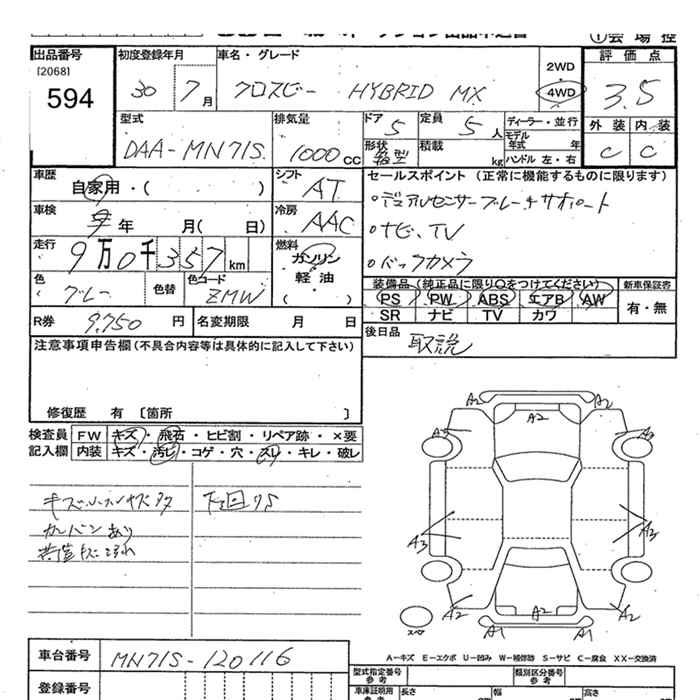 ①会場控
出品番号
[2068]
594
初度登録年月
30 7月
車名・グレード
クロスビー HYBRID MX
2WD
4WD
評価点
3.5
外装 内装
C C
型式
DAA-MN71S
排気量
1000cc
ドア 5
定員 5人
ディーラー・並行
モデル年式 年
形状 箱型
積載 kg
ハンドル 左・右
車歴
自家用・( )
シフト
AT
セールスポイント (正常に機能するものに限ります)
・デュアルセンサーブレーキサポート
・ナビ、TV
・バックカメラ
車検
年 月( 日)
冷房
AAC
走行
9万0千357km
燃料
ガソリン
軽油
( )
色
グレー
色替
色コード
ZMW
装備品(純正品に限り○をつけてください)
新車保証書
PS PW ABS エアB AW
有・無
SR ナビ TV カワ
R券 9,750円
名変期限 月 日
後日品
取説
注意事項申告欄(不具合内容等は具体的に記入して下さい)
修復歴 有 〔箇所 〕
検査員 FW キズ・飛石・ヒビ割・リペア跡・×要
記入欄 内装 キズ・汚レ・コゲ・穴・スレ・キレ・破レ
下回りS
A2 A2
A2
A3 A3
A3 A3
A2 A2 A2
A1 A1
スペア
A-キズ E-エクボ U-凹み W-補修跡 S-サビ C-腐食 XX-交換済
車台番号 MN71S-120116
登録番号
型式指定番号 参考
類別区分番号 参考
車庫証明用 参考 長さ 幅 高さ